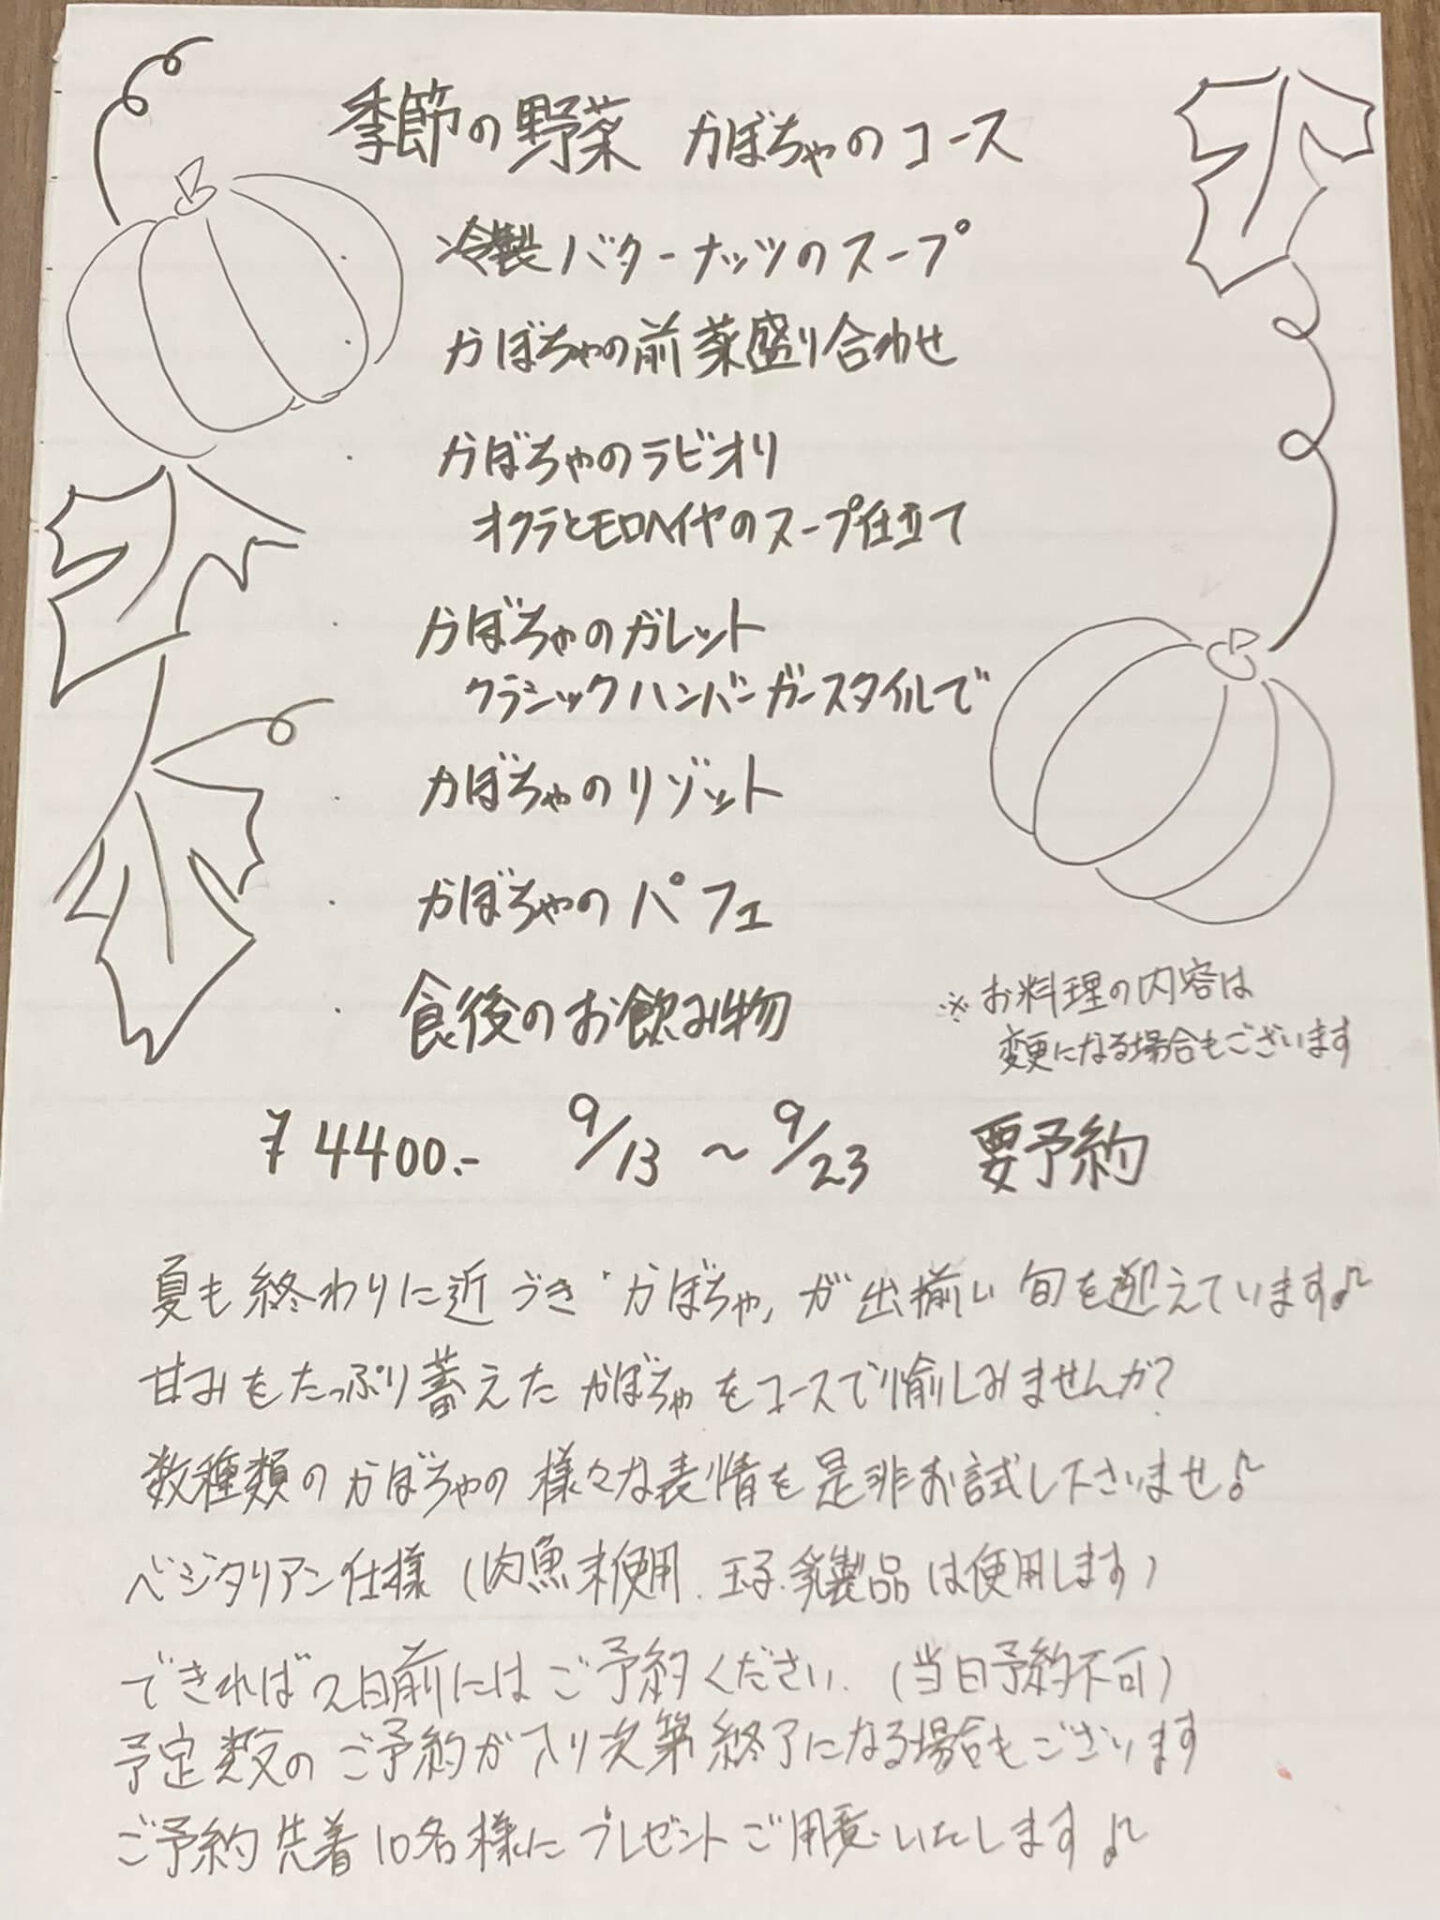 季節の野菜 かぼちゃのコース
冷製バターナッツのスープ
かぼちゃの前菜盛り合わせ
かぼちゃのラビオリ
オクラとモロヘイヤのスープ仕立て
かぼちゃのガレット
クラシックハンバーガースタイルで
かぼちゃのリゾット
かぼちゃのパフェ
食後のお飲み物
※お料理の内容は
変更になる場合もございます
¥4400.- 9/13 ~ 9/23 要予約
夏も終わりに近づき"かぼちゃ"が出揃い旬を迎えています♪
甘みをたっぷり蓄えたかぼちゃをコースで愉しみませんか?
数種類のかぼちゃの様々な表情を是非お試し下さいませ♪
ベジタリアン仕様(肉魚未使用.玉子.乳製品は使用します)
できれば2日前にはご予約ください.(当日予約不可)
予定数のご予約が入り次第終了になる場合もございます
ご予約先着10名様にプレゼントご用意いたします♪